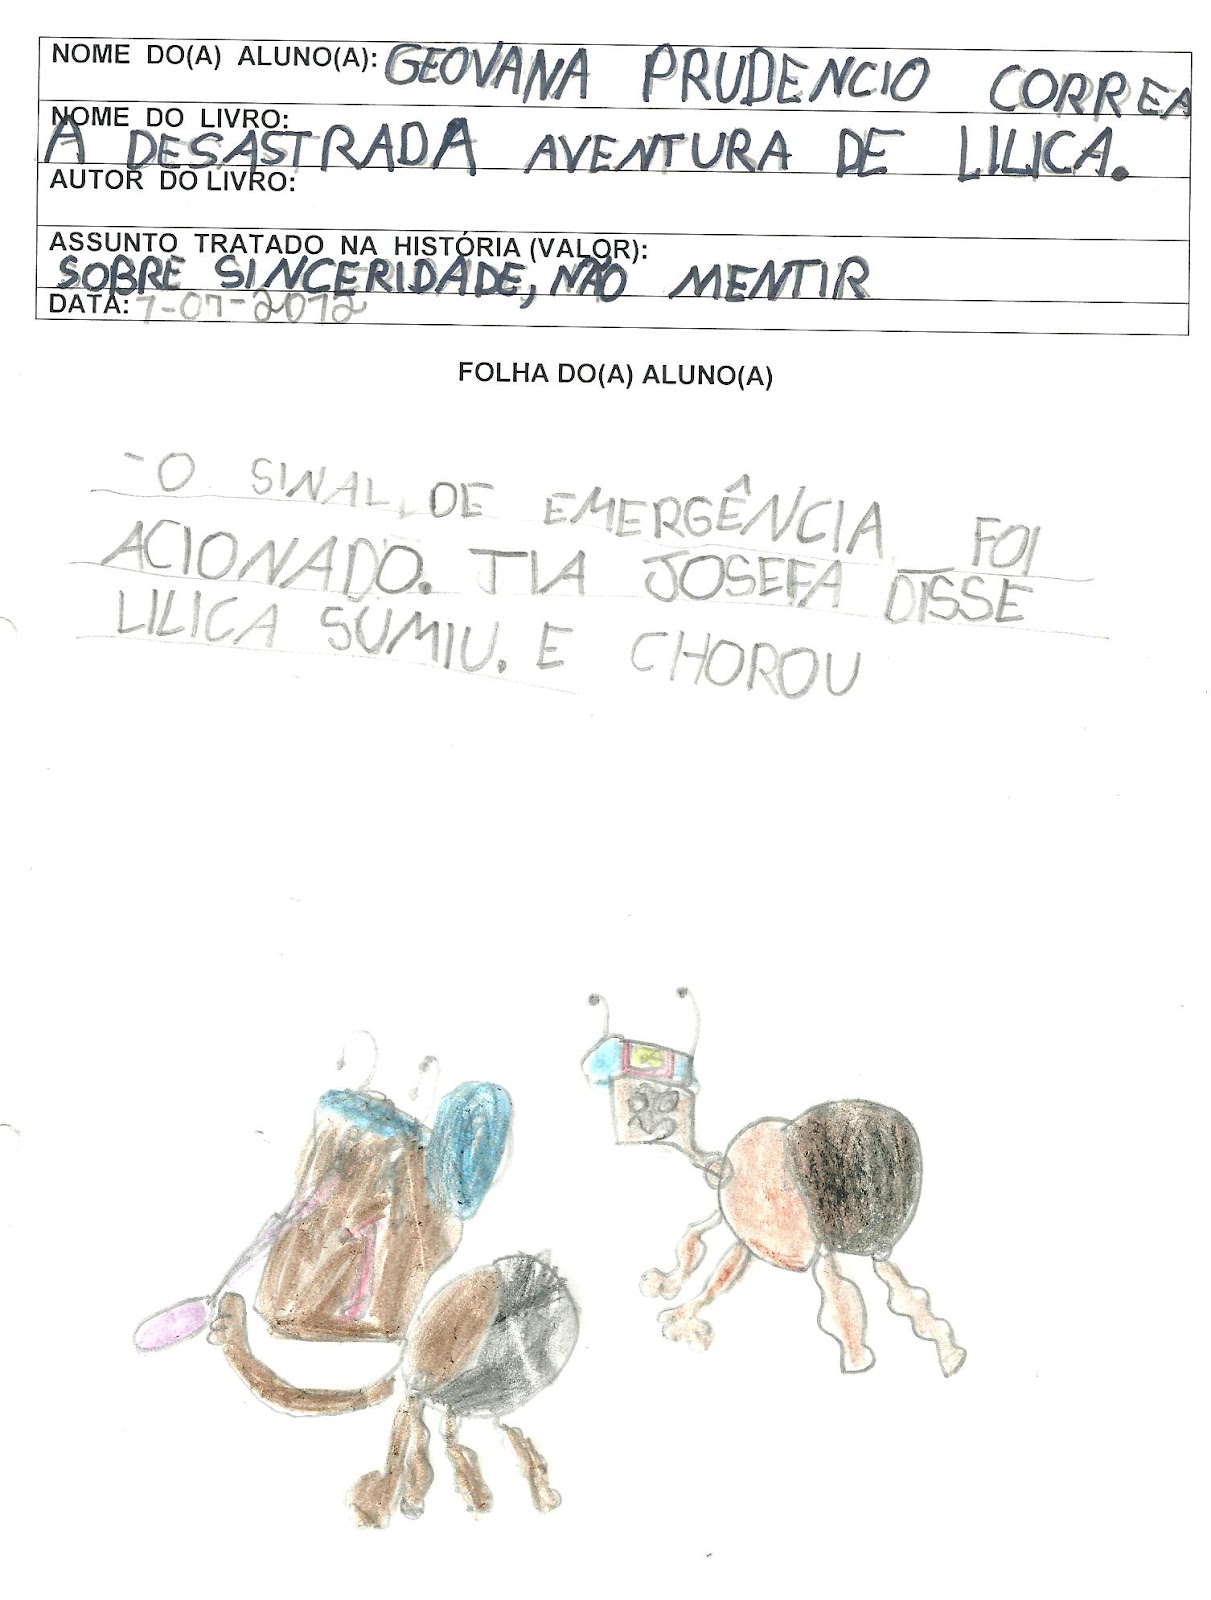 NOME DO(A) ALUNO(A): GEOVANA PRUDENCIO CORREA
NOME DO LIVRO:
A DESASTRADA AVENTURA DE LILICA.
AUTOR DO LIVRO:
ASSUNTO TRATADO NA HISTÓRIA (VALOR):
SOBRE SINCERIDADE, NÃO MENTIR
DATA: 7-07-2012
FOLHA DO(A) ALUNO(A)
-O SINAL DE EMERGÊNCIA FOI
ACIONADO. TIA JOSEFA DISSE
LILICA SUMIU. E CHOROU